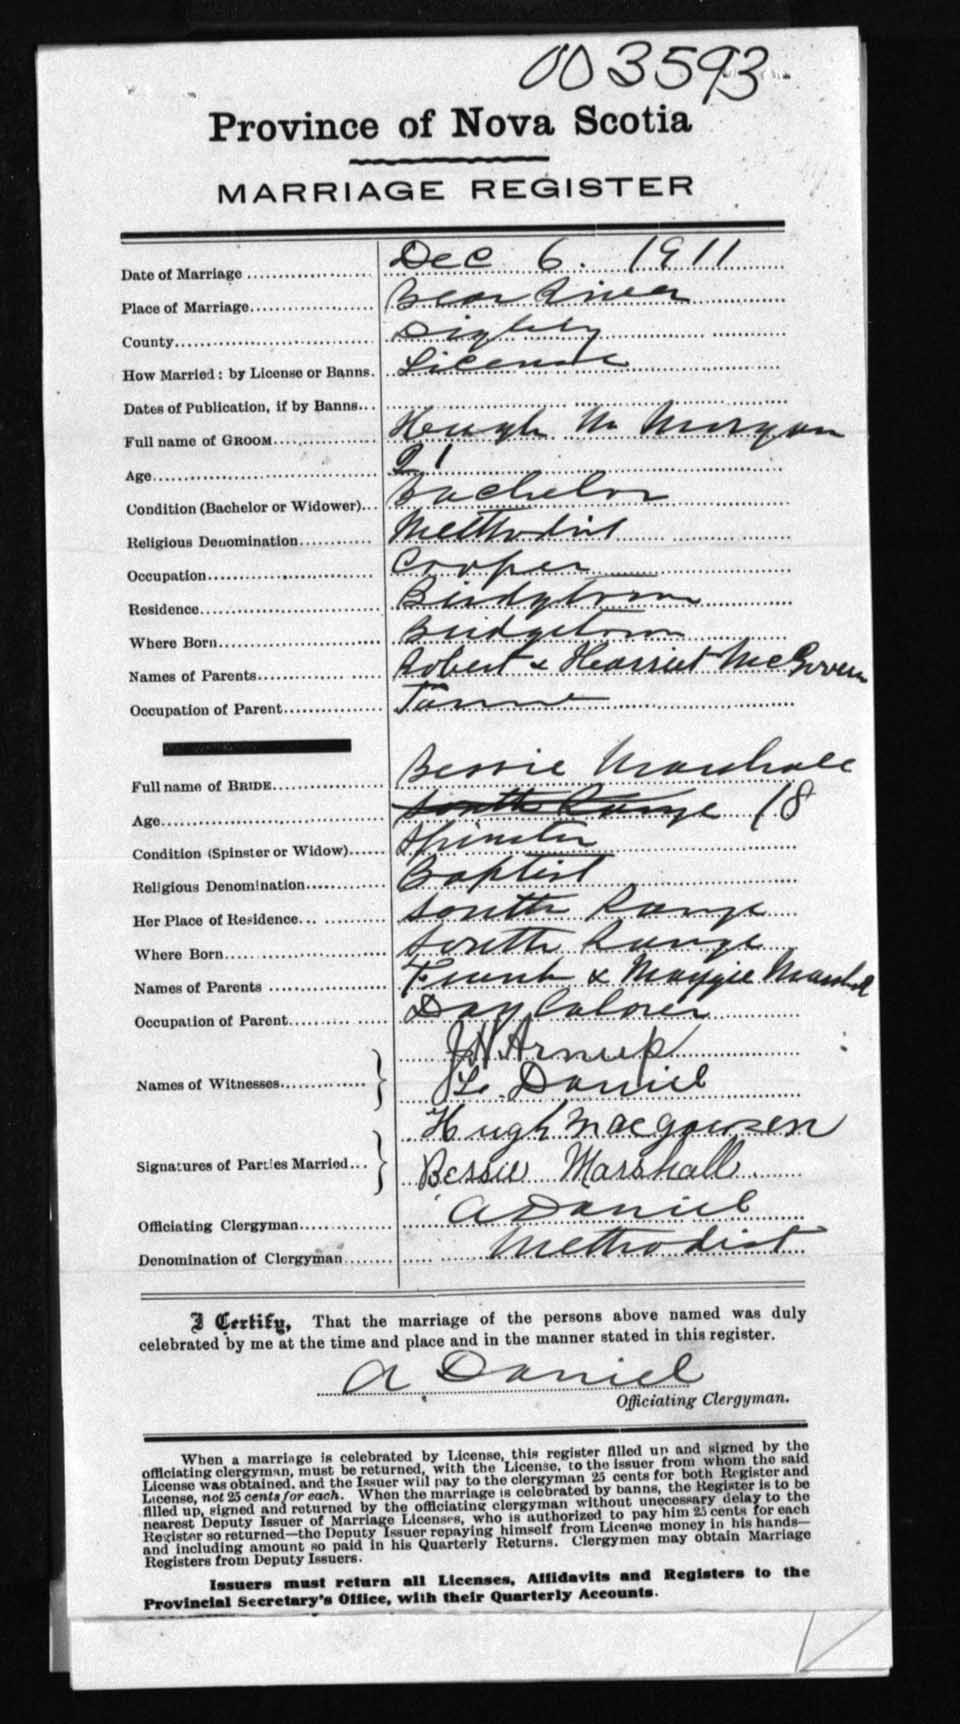 003593
Province of Nova Scotia
MARRIAGE REGISTER
Date of Marriage Dec 6. 1911
Place of Marriage Bear River
County Digby
How Married: by License or Banns. License
Dates of Publication, if by Banns
Full name of GROOM Hugh M
Age 21
Condition (Bachelor or Widower) Bachelor
Religious Denomination Methodist
Occupation Cooper
Residence Bridgetown
Where Born Bridgetown
Names of Parents Robert & Harriet
Occupation of Parent
Full name of BRIDE Bessie Marshall
Age South Range 18
Condition (Spinster or Widow) Spinster
Religious Denomination Baptist
Her Place of Residence South Range
Where Born South Range
Names of Parents Frank & Maggie Marshall
Occupation of Parent Day Laborer
Names of Witnesses J H Arnup
L. Daniel
Signatures of Parties Married Hugh
Bessie Marshall
Officiating Clergyman A Daniel
Denomination of Clergyman Methodist
I Certify, That the marriage of the persons above named was duly
celebrated by me at the time and place and in the manner stated in this register.
A Daniel
Officiating Clergyman.
When a marriage is celebrated by License, this register filled up and signed by the
officiating clergyman, must be returned, with the License, to the issuer from whom the said
License was obtained, and the Issuer will pay to the clergyman 25 cents for both Register and
License, not 25 cents for each. When the marriage is celebrated by banns, the Register is to be
filled up, signed and returned by the officiating clergyman without unnecessary delay to the
nearest Deputy Issuer of Marriage Licenses, who is authorized to pay him 25 cents for each
Register so returned—the Deputy Issuer repaying himself from License money in his hands—
and including amount so paid in his Quarterly Returns. Clergymen may obtain Marriage
Registers from Deputy Issuers.
Issuers must return all Licenses, Affidavits and Registers to the
Provincial Secretary's Office, with their Quarterly Accounts.